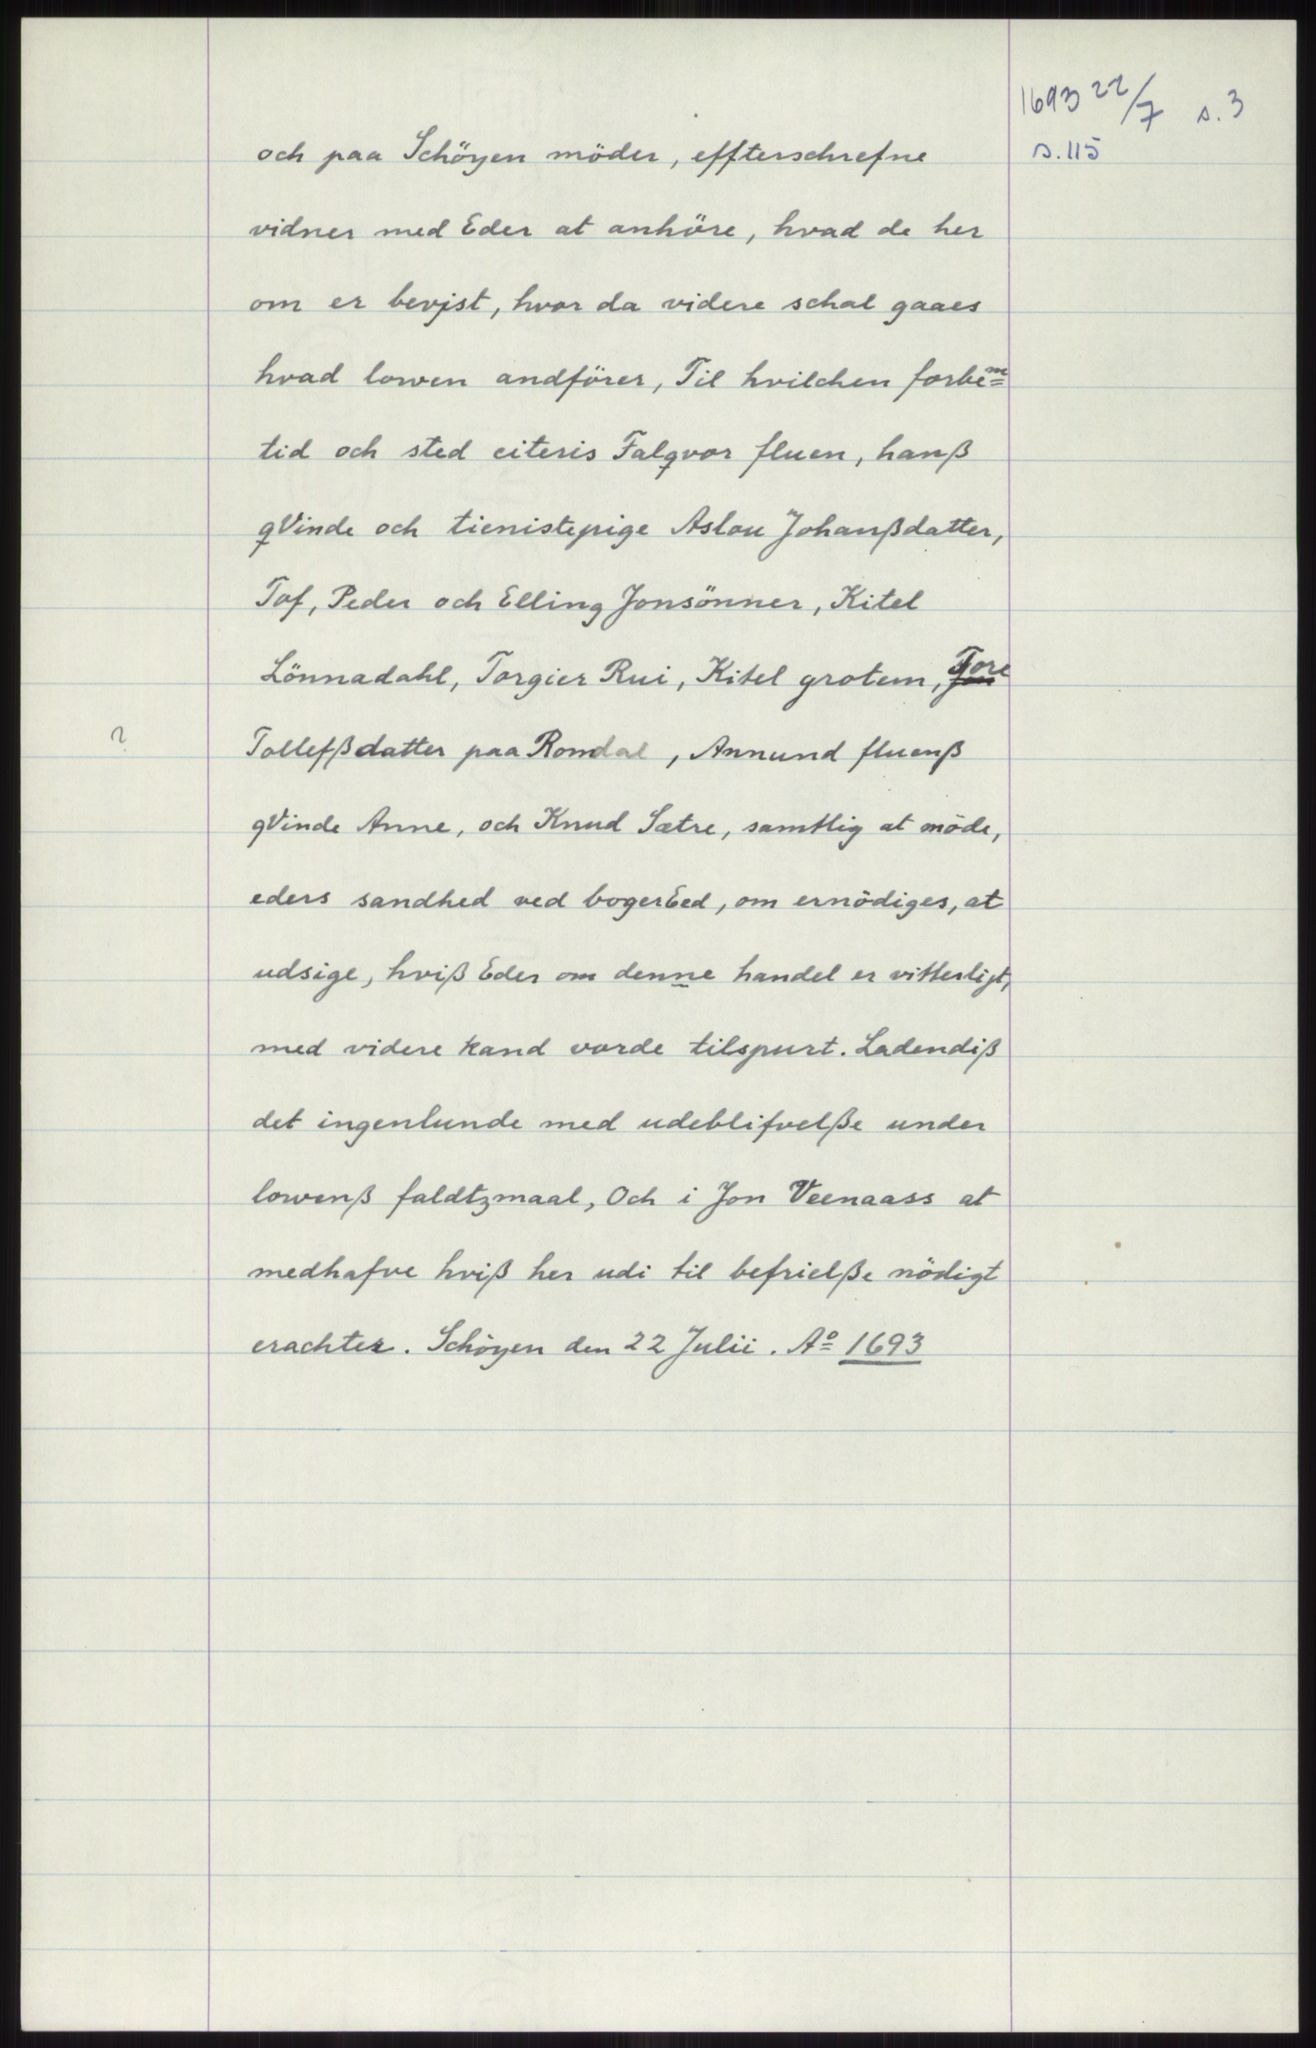 1693 22/7 s. 3
s. 115
och paa Schöyen möder, effterschrefne
vidner med Eder at anhöre, hvad de her
om er bevjst, hvor da videre schal gaaes
hvad lowen andförer, Til hvilchen forbem
tid och sted citeris Falqvor fluen, hanß
qVinde och tienistepige Aslou Johanßdatter,
Tof, Peder och Elling Jonsönner, Kitel
Lönnadahl, Torgier Rui, Kitel grotem, Tore
? Tollefßdatter paa Romdal, Annund fluenß
qVinde Anne, och Knud Sætre, samtlig at möde,
eders sandhed ved bogerEed, om ernödiges, at
udsige, hviß Eder om denne handel er vitterligt,
med videre kand vorde tilspurt. Ladendiß
det ingenlunde med udeblifvelße under
lowenß faldtzmaal, Och i Jon Veenaass at
medhafve hviß her udi til befrielße nödigt
erachter. Schöyen den 22 Julii. Ao 1693